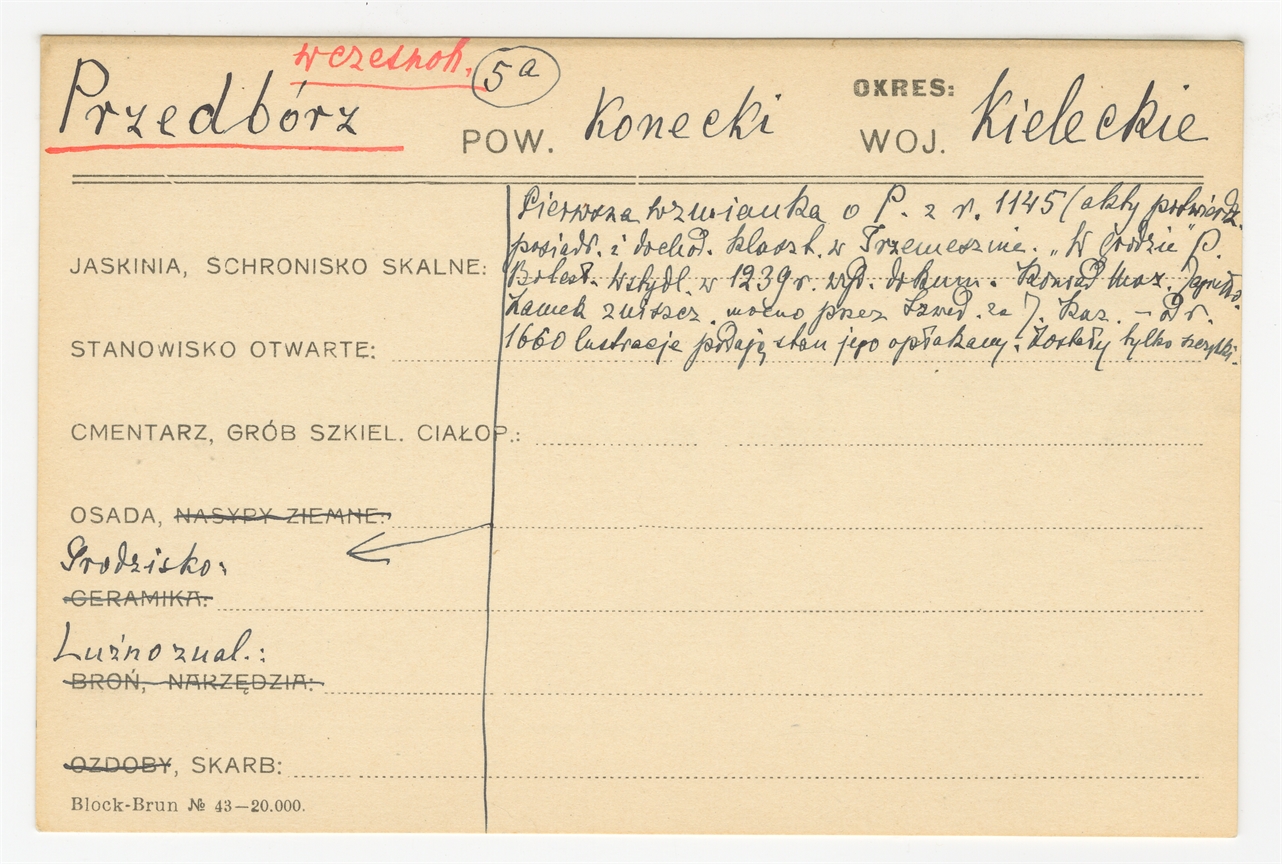 wczesnoh. 5a
Przedbórz POW. Konecki OKRES: WOJ. Kieleckie
Pierwsza wzmianka o P. z r. 1145 (akty potwierdz.
posiadł. i dochod. klaszt. w Trzemesznie. „W grodzie" P.
JASKINIA, SCHRONISKO SKALNE:
Bolesł. Wstydl. w 1239 r. wyd. dokum. Konrad. Maz.
Zamek zniszcz. mocno przez Szwed. za J. Kaz. – Od r.
1660 lustracje podają stan jego opłakany. Zostały tylko szczątki.
STANOWISKO OTWARTE:
CMENTARZ, GRÓB SZKIEL. CIAŁOP.:
OSADA, NASYPY ZIEMNE:
Grodzisko:
CERAMIKA:
Luźno znal.:
BROŃ, NARZĘDZIA:
OZDOBY, SKARB:
Block-Brun № 43—20.000.